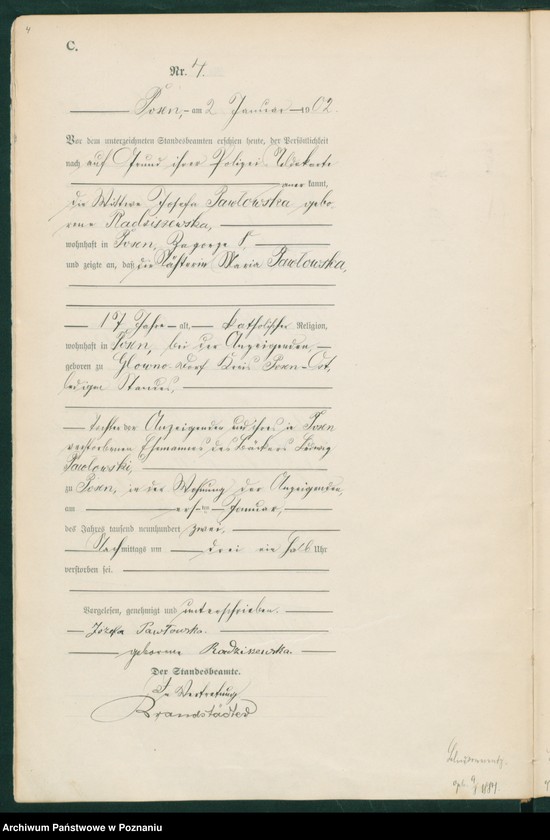 4
C.
Nr. 4.
Posen, am 2 Januar 1902.
Vor dem unterzeichneten Standesbeamten erschien heute, der Persönlichkeit
nach auf Grund ihrer Polizei Meldekarte
anerkannt,
die Wittwe Josefa Pawlowska gebo
rene Radziszewska,
wohnhaft in Posen, Zagorze 5,
und zeigte an, daß die Nähterin Maria Pawlowska,
17 Jahre alt, katholischer Religion,
wohnhaft in Posen, bei der Anzeigenden,
geboren zu Glowno Dorf Kreis Posen-Ost,
ledigen Standes,
Tochter der Anzeigenden und ihres in Posen
verstorbenen Ehemannes des Bäckers Ludwig
Pawlowski,
zu Posen, in der Wohnung der Anzeigenden,
am ersten Januar,
des Jahres tausend neunhundert zwei,
Nachmittags um drei ein halb Uhr
verstorben sei.
Vorgelesen, genehmigt und unterschrieben.
Józefa Pawłowska.
geborene Radziszewska.
Der Standesbeamte.
In Vertretung
Brandstädter
1884.
Archiwum Państwowe w Poznaniu